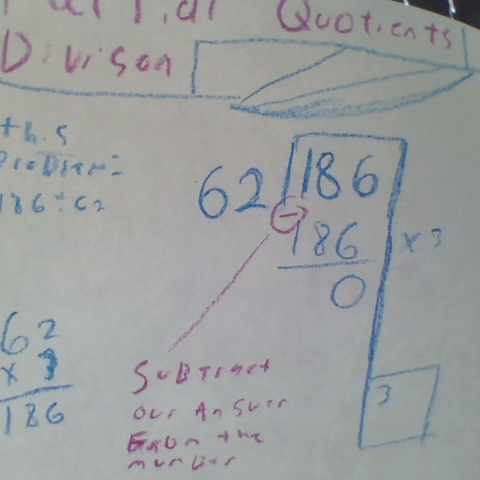 Quotients
Divison
this
Problem=
186÷62
62 186
- 186 x 3
0
3
62
x 3
186
Subtract
our Answer
From the
number